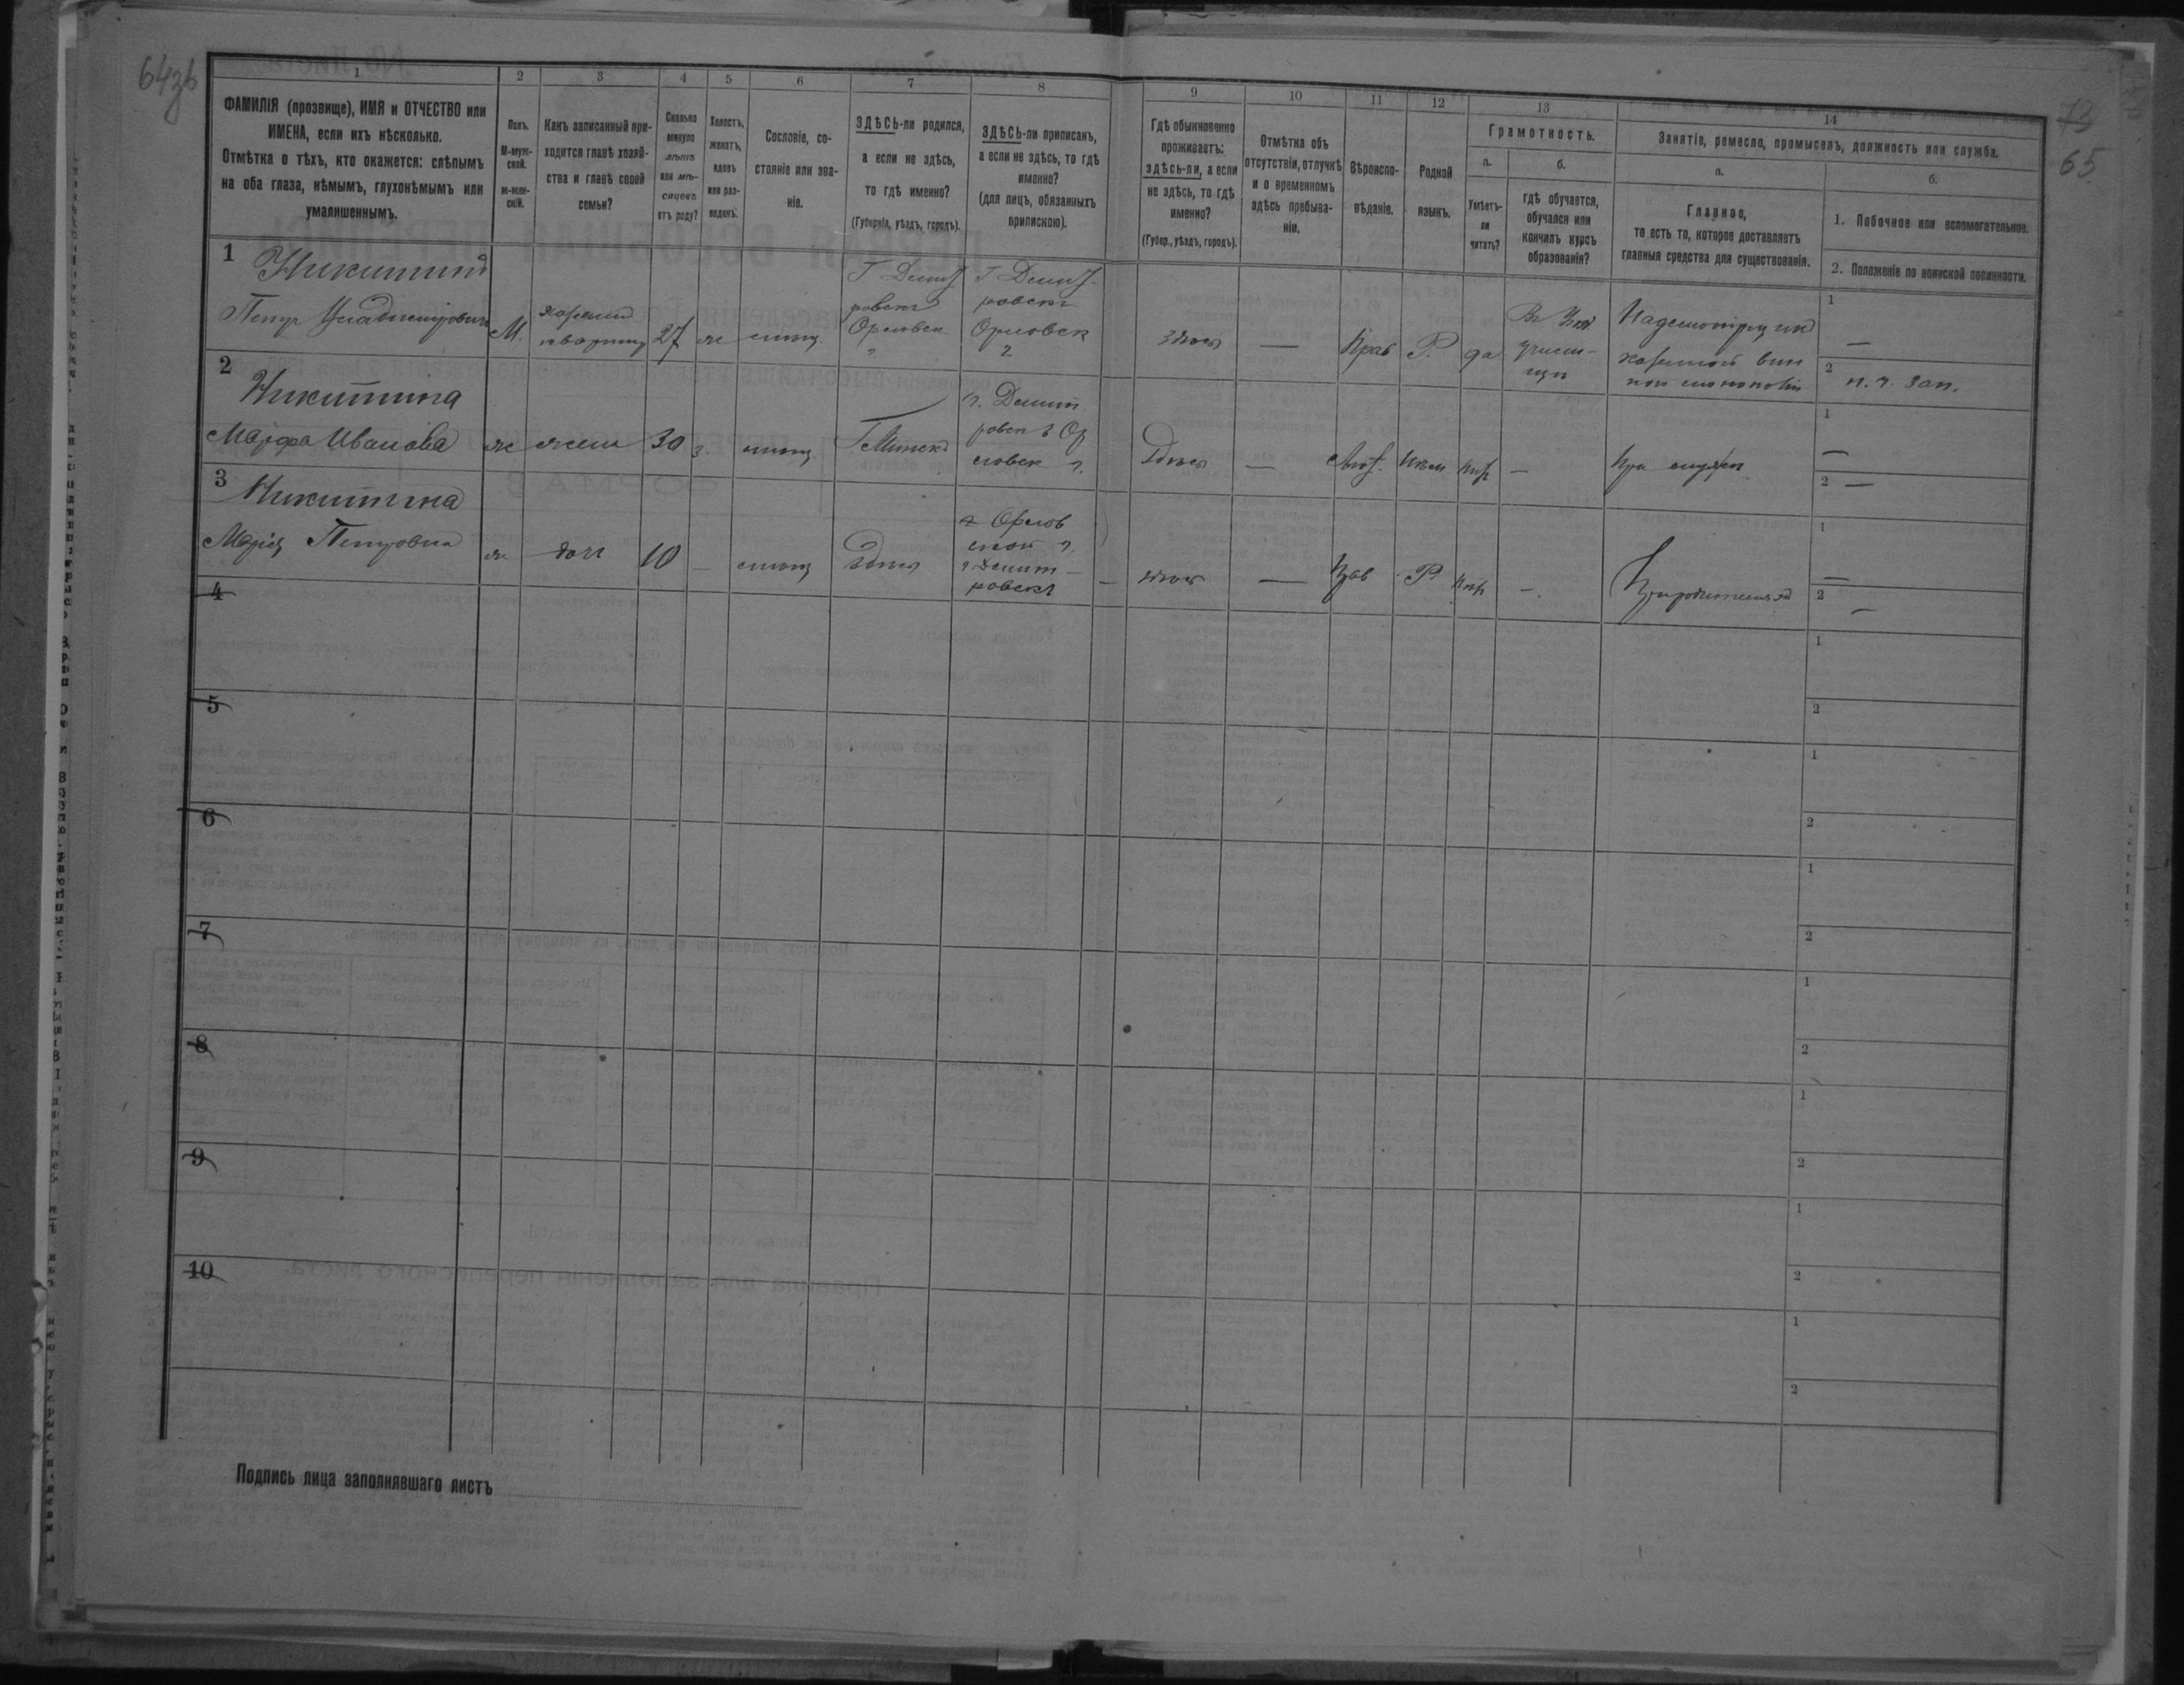 64зб
73
65
1
2
3
4
5
6
7
8
9
10
11
12
13
14
ФАМИЛІЯ (прозвище), ИМЯ и ОТЧЕСТВО или
ИМЕНА, если ихъ нѣсколько.
Отмѣтка о тѣхъ, кто окажется: слѣпымъ
на оба глаза, нѣмымъ, глухонѣмымъ или
умалишеннымъ.
Полъ.
М-муж-
ской.
ж-жен-
скій.
Какъ записанный при-
ходится главѣ хозяй-
ства и главѣ своей
семьи?
Сколько
минуло
лѣтъ
или мѣ-
сяцевъ
отъ роду?
Холостъ,
женатъ,
вдовъ
или раз-
веденъ.
Сословіе, со-
стояніе или зва-
ніе.
ЗДѢСЬ-ли родился,
а если не здѣсь,
то гдѣ именно?
(Губернія, уѣздъ, городъ).
ЗДѢСЬ-ли приписанъ,
а если не здѣсь, то гдѣ
именно?
(для лицъ, обязанныхъ
припискою).
Гдѣ обыкновенно
проживаетъ:
здѣсь-ли, а если
не здѣсь, то гдѣ
именно?
(Губер., уѣздъ, городъ).
Отмѣтка объ
отсутствіи, отлучкѣ
и о временномъ
здѣсь пребыва-
ніи.
Вѣроиспо-
вѣданіе.
Родной
языкъ.
Грамотность.
а.
Умѣетъ-
ли
читать?
б.
гдѣ обучается,
обучался или
кончилъ курсъ
образованія?
Занятіе, ремесло, промыселъ, должность или служба.
а.
Главное,
то есть то, которое доставляетъ
главныя средства для существованія.
б.
1. Побочное или вспомогательное.
2. Положеніе по воинской повинности.
1
Никитинъ
Петръ
М.
хозяинъ
квартиры
27
ж
мѣщ.
Г Дмит
ровскъ
Орловск
г
Г Дмит-
ровскъ
Орловск
г.
здѣсь
—
Прав
Р.
да
учили-
щѣ
Надсмотрщикъ
казенной вин
ной монополіи
1 —
2 н. ч. зап.
2
Никитина
Марфа Иванова
ж
жена
30
з.
мѣщ
Г Минскъ
г. Дмит
ровскъ Ор
ловск г.
Здѣсь
—
Лют.
Нѣм
—
При мужѣ
1 —
2 —
3
Никитина
Марія Петровна
ж
дочь
10
—
мѣщ
Здѣсь
Орлов
ской г.
г Дмит-
ровскъ
—
здѣсь
—
Прав
Р.
—.
При родителяхъ
1 —
2 —
4
1
2
5
1
2
6
1
2
7
1
2
8
1
2
9
1
2
10
1
2
Подпись лица заполнявшаго листъ